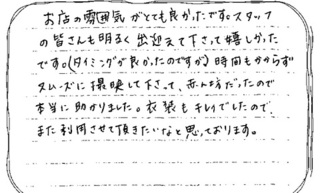 お店の雰囲気がとても良かったです。スタッフ
の皆さんも明るく出迎えて下さって嬉しかった
です。(タイミングが良かったのですが)時間もかからず
スムーズに撮映して下さって、赤ん坊だったので
本当に助かりました。衣装もキレイでしたので、
また利用させて頂きたいなと思っております。